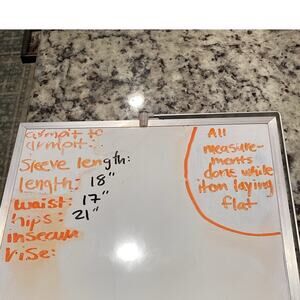 armpit to
armpit:
Sleeve length:
length: 18"
waist: 17"
hips: 21"
inseam
rise:
All
measure-
ments
done while
item laying
flat